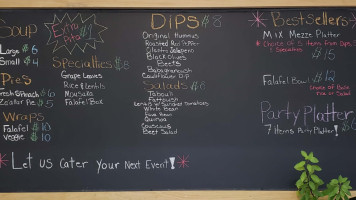 Soup
Large $6
Small $4
Extra Pita $1
Pies
Fresh Spinach $6
Za'atar Pie $5
Wraps
Falafel $10
Veggie $10
Specialties $8
Grape Leaves
Rice & Lentils
Moussaka
Falafel Box
DIPS $8
Original Hummus
Roasted Red Pepper
Cilantro Jalapeno
Black Olives
Beets
Babaganoush
Cauliflower Dip
Salads $8
Tabouli
Fattoush
Lentils w/ Sundried Tomatoes
White Bean
Fava Bean
Quinoa
Couscous
Beet Salad
Best Sellers
Mix Mezze Platter
* Choice of 5 items From Dips,
& Specialties
$15
Falafel Bowl $12
Choice of
Dip or Salad
Party Platter
7 Items Party Platter $
Let us Cater Your Next Event!